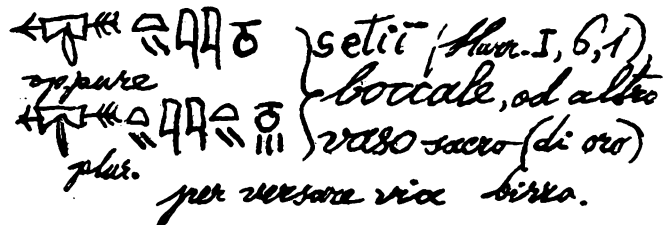 setiï (Harr. I, 6, 1),
oppure
boccale, od altro
vaso sacro (di oro)
plur.
per versare via birra.